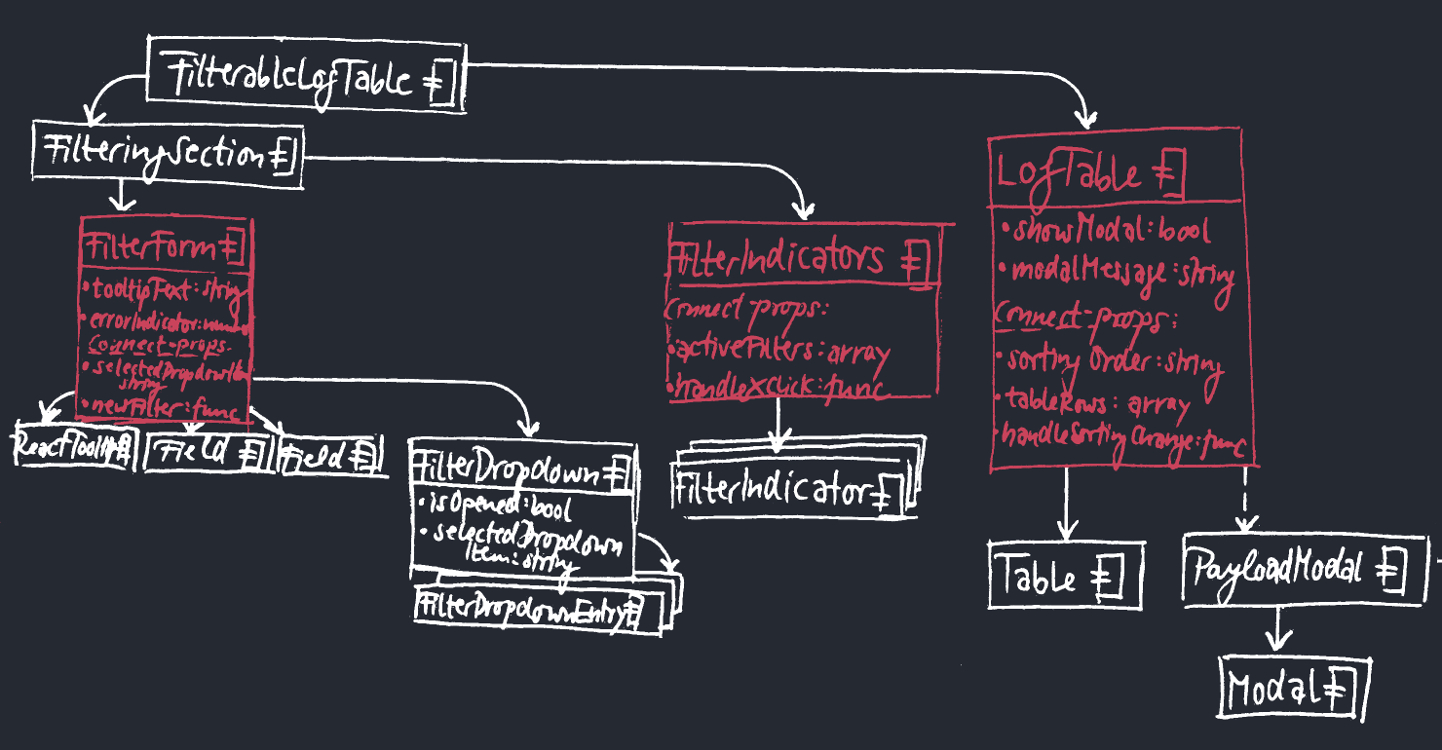 FilterableLogTable
FilteringSection
FilterForm
•tooltipText:string
•errorIndicator:number
Connect-props.
•selectedDropdownItem
string
•newFilter:func
ReactTooltip
Field
Field
FilterDropdown
•isOpened:bool
•selectedDropdown
Item:string
FilterDropdownEntry
FilterIndicators
Connect props:
•activeFilters:array
•handleXClick:func
FilterIndicator
LogTable
•showModal:bool
•modalMessage:string
Connect-props:
•sorting Order:string
•tableRows: array
•handleSortingChange:func
Table
PayloadModal
Modal